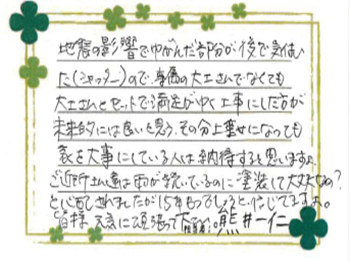 地震の影響でゆがんだ部分が後で気付い
た(シャッター)ので、専属の大工さんでなくても
大工さんとセットで満足がゆく工事にした方が
未来的には良いと思う。その分上乗せになっても
家を大事にしている人は納得すると思いますよ。
ご近所も達は雨が続いているのに塗装して大丈夫なの?
と心配されましたが15年もつでしょうと信じてますよ。
皆様 元気に頑張って下さい。熊井一仁